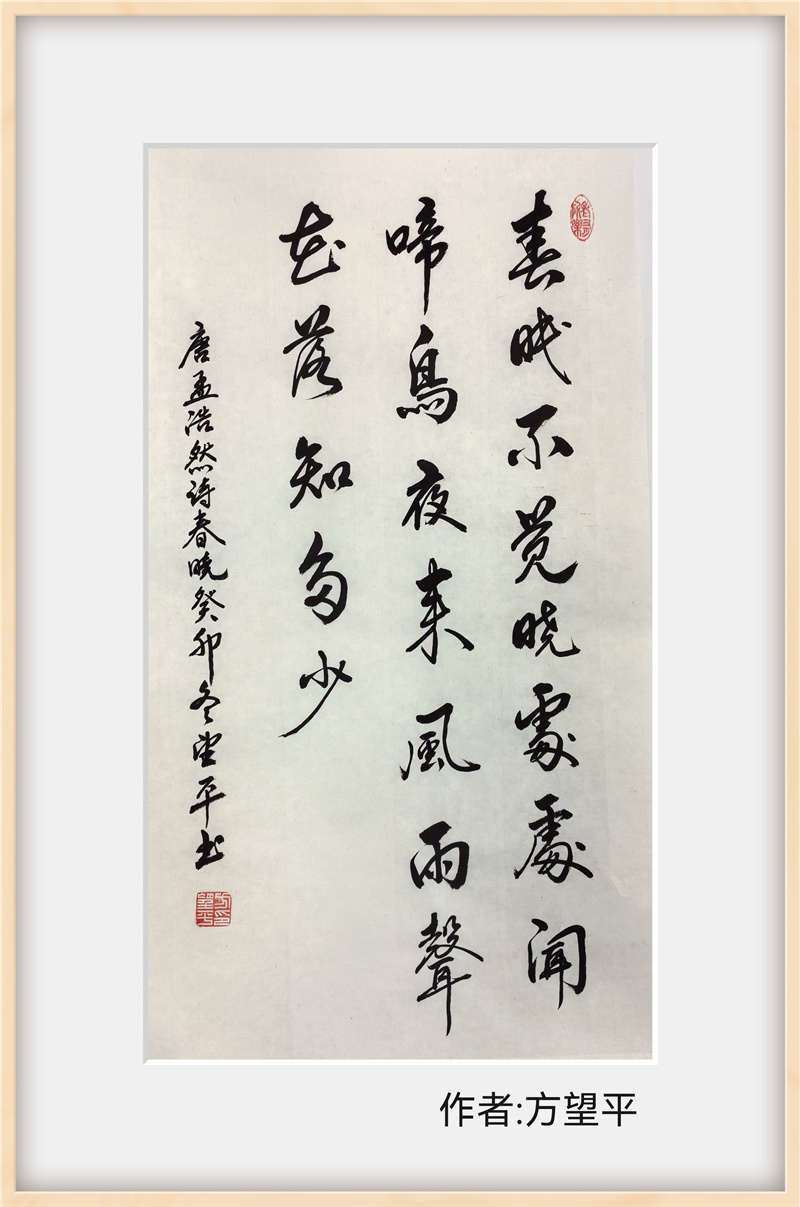 春眠不觉晓處處聞
啼鳥夜来風雨聲
花落知多少
唐孟浩然诗春晓癸卯冬望平书
作者:方望平